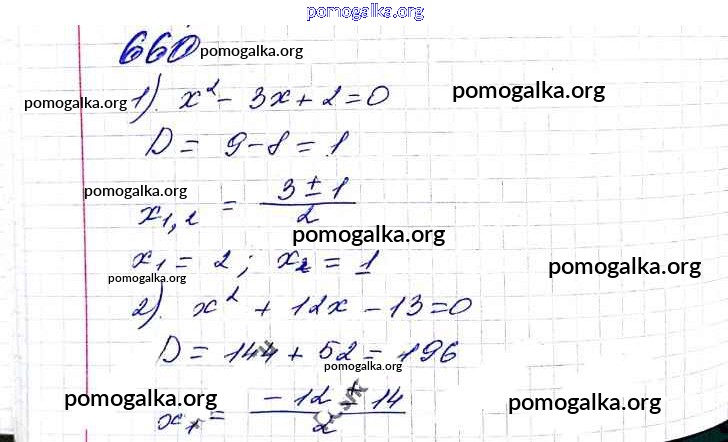 pomogalka.org
660 pomogalka.org
pomogalka.org 1). x² - 3x + 2 = 0 pomogalka.org
D = 9 - 8 = 1
pomogalka.org
x₁,₂ = (3 ± 1)/2
pomogalka.org
x₁ = 2; x₂ = 1 pomogalka.org
pomogalka.org
2). x² + 12x - 13 = 0
D = 144 + 52 = 196
pomogalka.org
pomogalka.org pomogalka.org
x₁ = (-12 + 14)/2